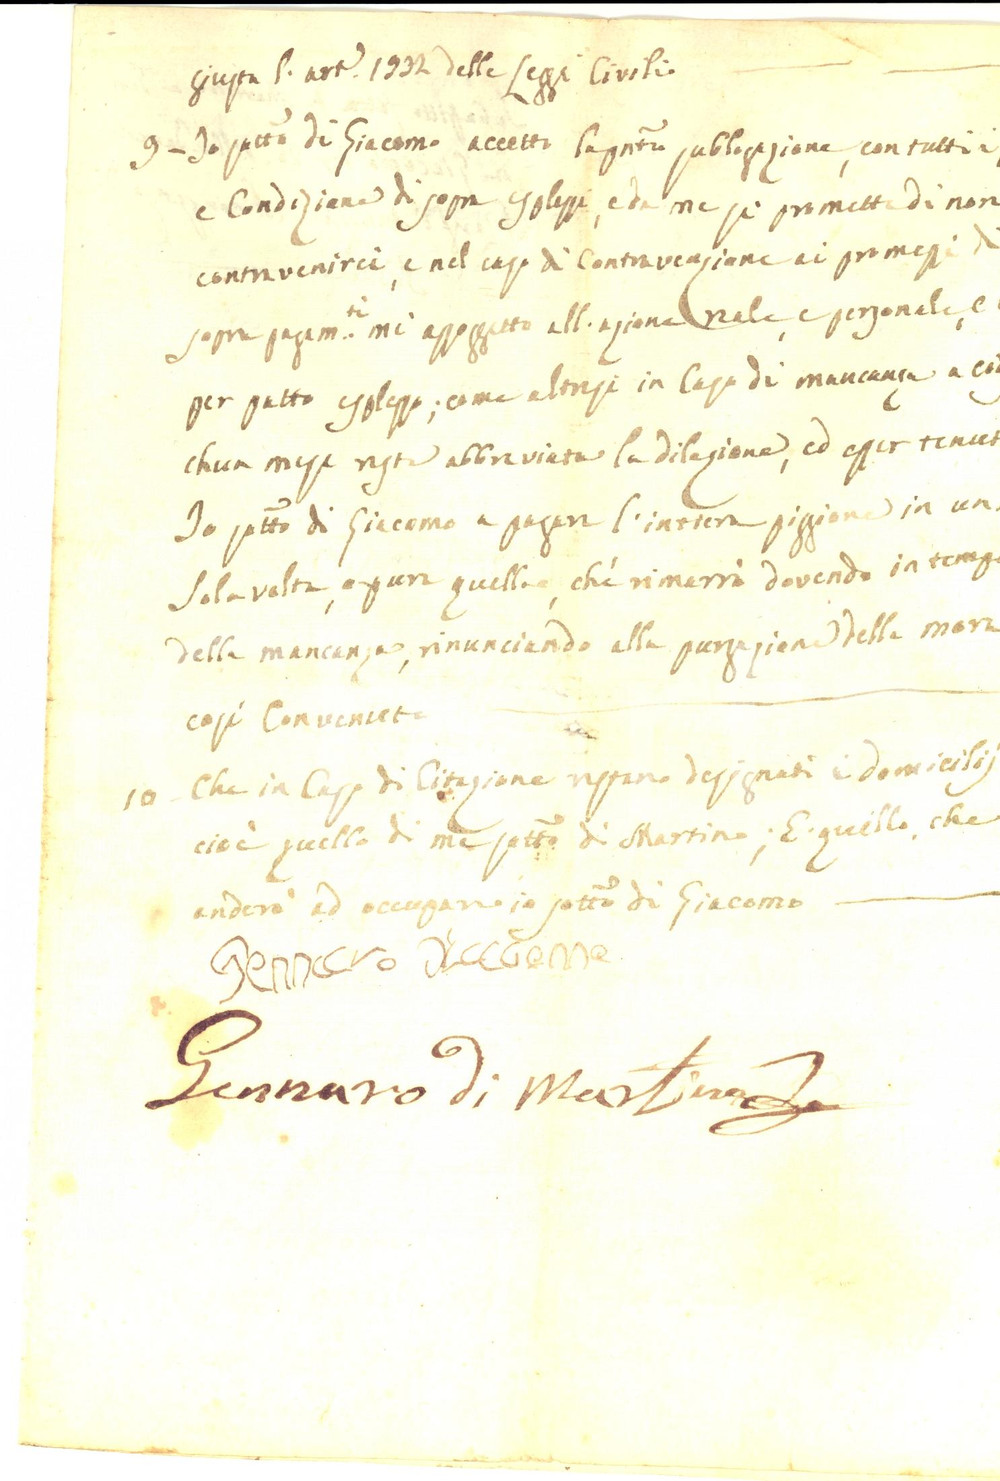 giusta l'art.º 1932 delle Leggi Civili
9 – Io sottº di Giacomo accetto la pñte subblogazione, con tutti i
e Condizione di sopra esplesse, e da me si promette di non
contravenirci, e nel caso di Contravenzione ai promessi di
sopra pagam.ti mi assoggetto all'azione reale, e personale, e
per patto esplesso; come altresi in Caso di mancanza a
chun mese resta abbreviata la dilazione, ed esser tenuto
Io sottº di Giacomo a pagare l'intiera piggione in un
Sola volta, o pure quella, che rimarrò dovendo in tempo
della mancanza, rinunciando alla purgazione della mora
così Convenuto
10 – Che in Caso di Citazione restano dessignati i domicilij
cioè quello di me sottº di Martino; E quello, che
anderò ad occupare io sottº di Giacomo
Gennaro
Gennaro di Martino